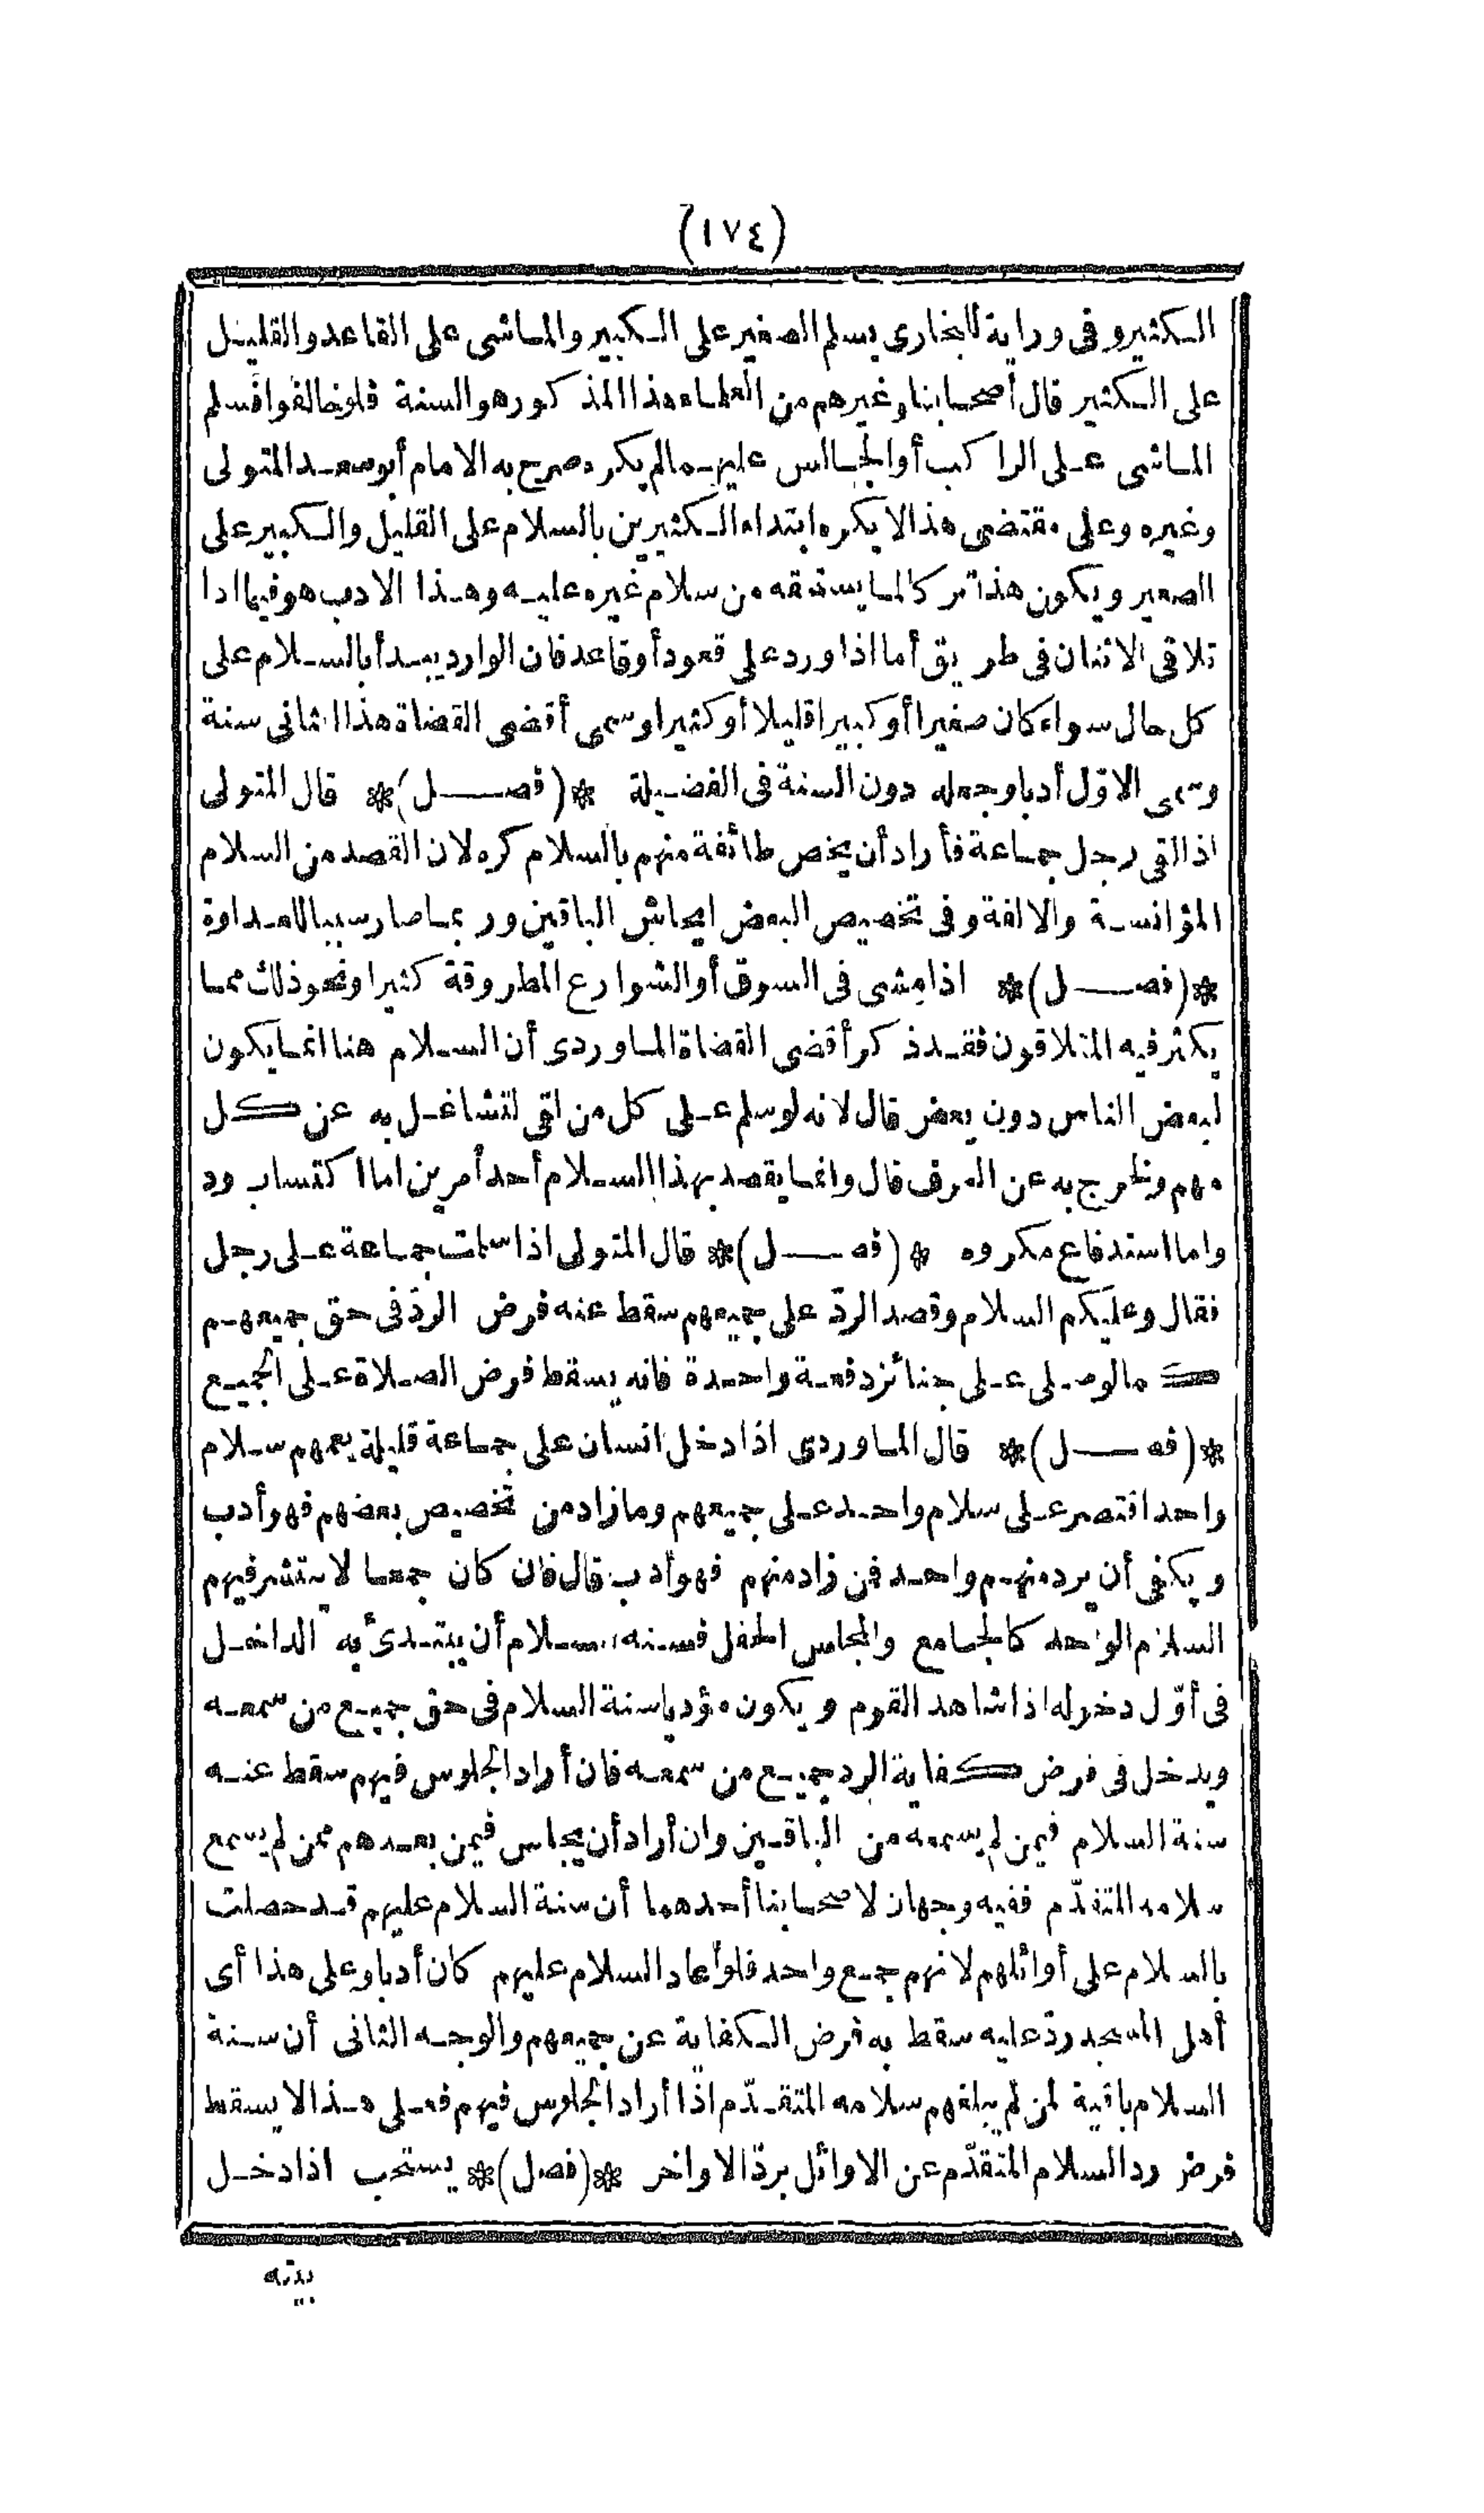 (١٧٤)
الكثير وفى رواية للبخارى يسلم الصغير على الكبير والماشى على القاعد والقليل
على الكثير قال أصحابنا وغيرهم من العلماء هذا المذكور هو السنة فلو خالفوا فسلم
الماشى على الراكب أو الجالس عليهما لم يكره صرح به الامام أبو سعد المتولى
وغيره وعلى مقتضى هذا لا يكره ابتداء الكثيرين بالسلام على القليل والكبير على
الصغير ويكون هذا تركا لما يستحقه من سلام غيره عليه وهذا الادب هو فيما اذا
تلاقى الاثنان فى طريق أما اذا ورد على قعود أو قاعد فان الوارد يبدأ بالسلام على
كل حال سواء كان صغيرا أو كبيرا قليلا أو كثيرا وسمى أقضى القضاة هذا الثانى سنة
وسمى الاوّل أدبا وجعله دون السنة فى الفضيلة *(فصل)* قال المتولى
اذا لقى رجل جماعة فأراد أن يخص طائفة منهم بالسلام كره لان القصد من السلام
المؤانسة والالفة وفى تخصيص البعض ايحاش الباقين وربما صار سببا للعداوة
*(فصل)* اذا مشى فى السوق أو الشوارع المطروقة كثيرا ونحو ذلك مما
يكثر فيه المتلاقون فقد ذكر أقضى القضاة الماوردى أن السلام هنا انما يكون
لبعض الناس دون بعض قال لانه لو سلم على كل من لقى لتشاغل به عن كل
مهم ولخرج به عن العرف قال وانما يقصد بهذا السلام أحد أمرين اما اكتساب ود
واما استدفاع مكروه *(فصل)* قال المتولى اذا سلمت جماعة على رجل
فقال وعليكم السلام وقصد الردّ على جميعهم سقط عنه فرض الردّ فى حق جميعهم
كما لو صلى على جنائز دفعة واحدة فانه يسقط فرض الصلاة على الجميع
*(فصل)* قال الماوردى اذا دخل انسان على جماعة قليلة يعمهم سلام
واحد اقتصر على سلام واحد على جميعهم وما زاد من تخصيص بعضهم فهو أدب
ويكفى أن يرد منهم واحد فمن زاد منهم فهو أدب قال فان كان جمعا لا ينتشر فيهم
السلام الواحد كالجامع والمجلس الحفل فسنة السلام أن يبتدئ به الداخل
فى أوّل دخوله اذا شاهد القوم ويكون مؤديا سنة السلام فى حق جميع من سمعه
ويدخل فى فرض كفاية الرد جميع من سمعه فان أراد الجلوس فيهم سقط عنه
سنة السلام فيمن لم يسمعه من الباقين وان أراد أن يجلس فيمن بعدهم ممن لم يسمع
سلامه المتقدّم ففيه وجهان لاصحابنا أحدهما أن سنة السلام عليهم قد حصلت
بالسلام على أوائلهم لانهم جمع واحد فلو أعاد السلام عليهم كان أدبا وعلى هذا أى
أهل المسجد ردّ عليه سقط به فرض الكفاية عن جميعهم والوجه الثانى أن سنة
السلام باقية لمن لم يبلغهم سلامه المتقدّم اذا أراد الجلوس فيهم فعلى هذا لا يسقط
فرض رد السلام المتقدّم عن الاوائل بردّ الاواخر *(فصل)* يستحب اذا دخل
بيته